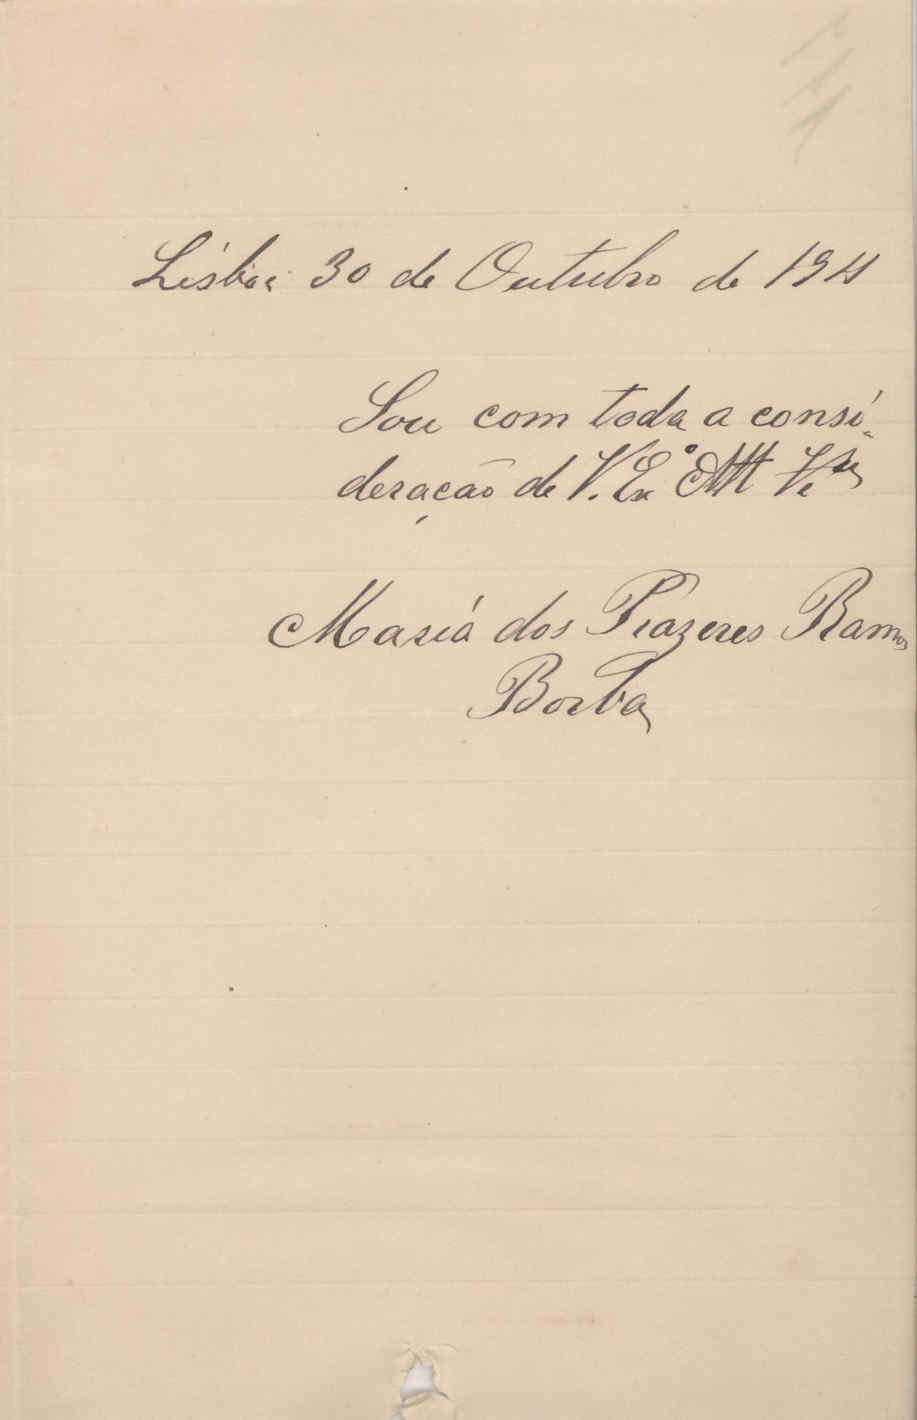 Lisboa 30 de Outubro de 1911
Sou com toda a consi-
deração de V. Exª Att Vᵉʳ
Maria dos Prazeres Ramos
Borba